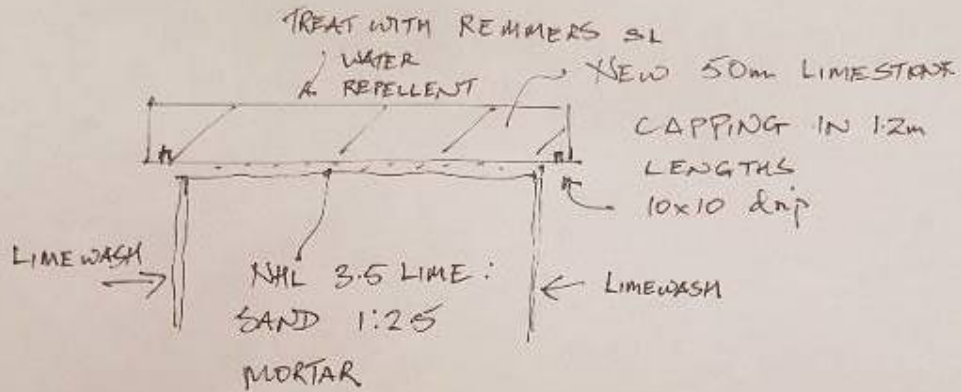 TREAT WITH REMMERS SL
WATER
REPELLENT
NEW 50m LIMESTONE
CAPPING IN 1.2m
LENGTHS
10x10 drip
LIMEWASH
NHL 3.5 LIME:
SAND 1:2.5
MORTAR
LIMEWASH